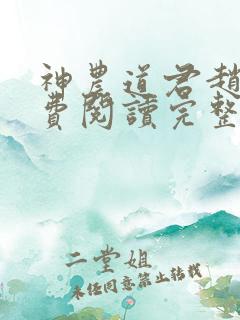 神農道君趙
費閱讀完整
二堂姐
未经同意禁止转载